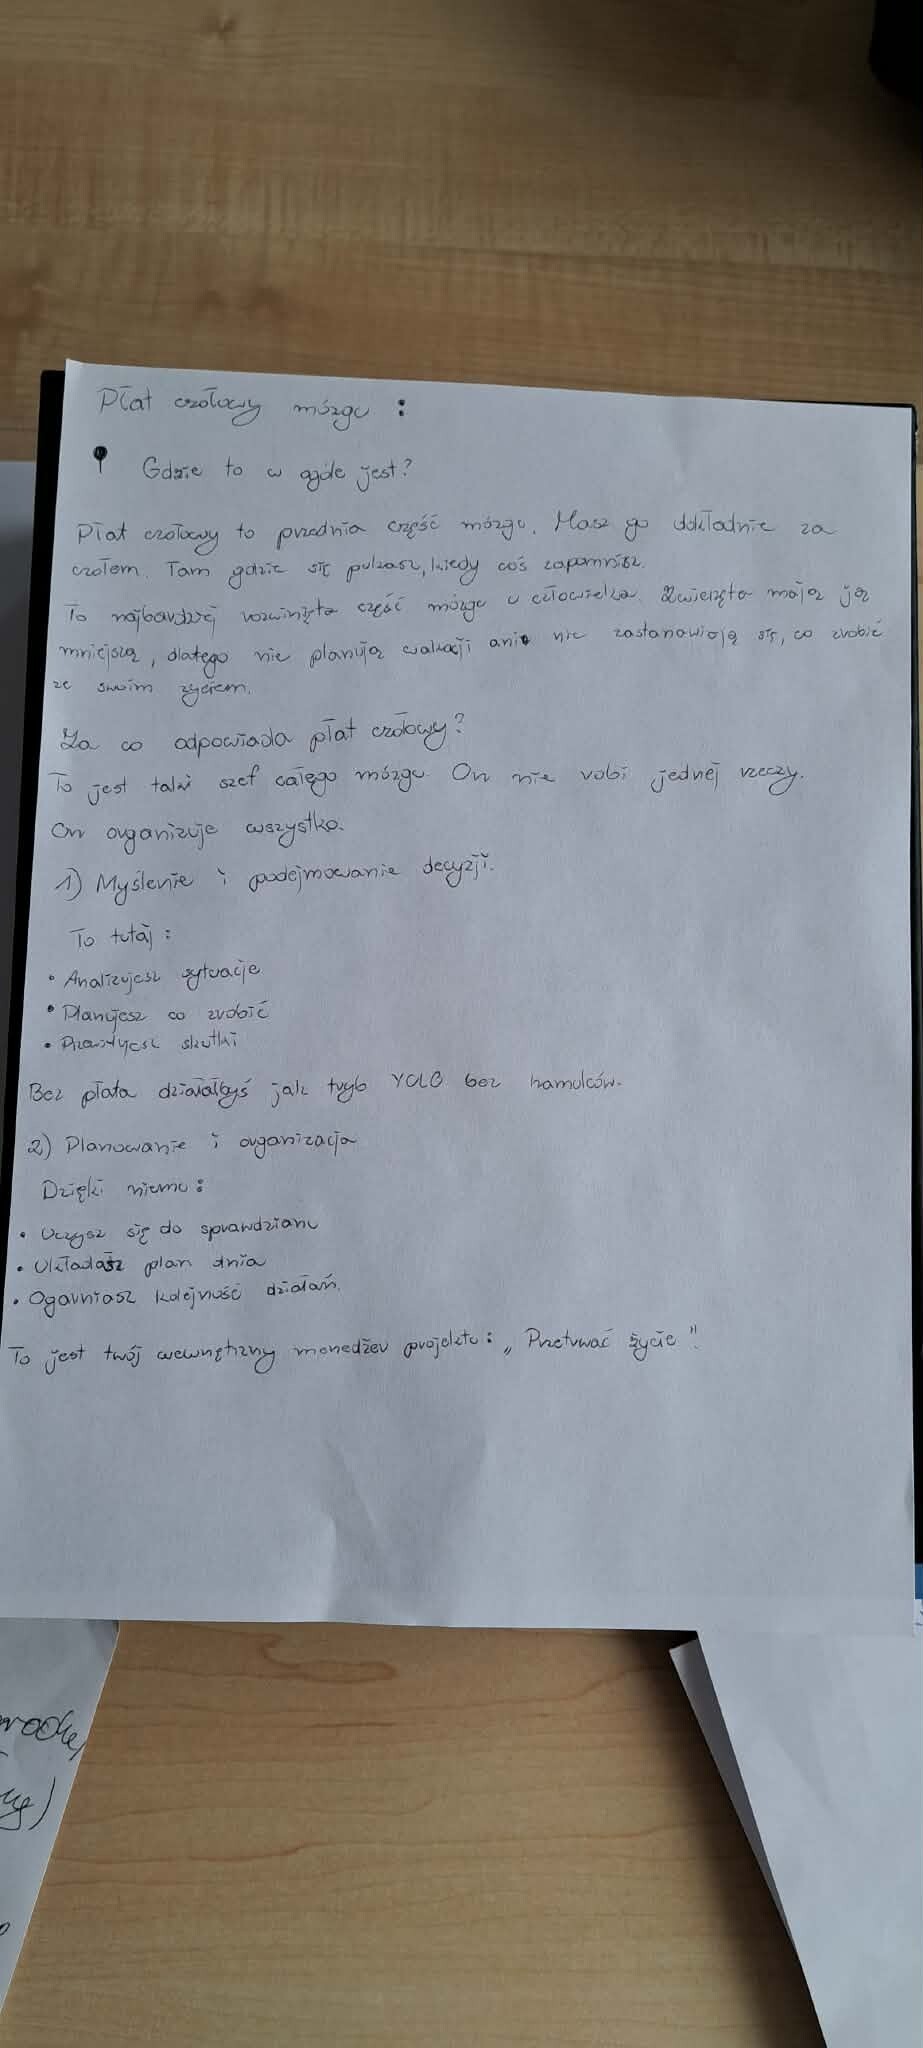 Płat czołowy mózgu :
Gdzie to w ogóle jest?
Płat czołowy to przednia część mózgu. Masz go dokładnie za
czołem. Tam gdzie się pukasz, kiedy coś zapomnisz.
To najbardziej rozwinięta część mózgu u człowieka. Zwierzęta mają ją
mniejszą, dlatego nie planują wakacji ani nie zastanawiają się, co zrobić
ze swoim życiem.
Za co odpowiada płat czołowy?
To jest taki szef całego mózgu. On nie robi jednej rzeczy.
On organizuje wszystko.
1) Myślenie i podejmowanie decyzji.
To tutaj :
• Analizujesz sytuacje
• Planujesz co zrobić
• skutki
Bez płata działałbyś jak tryb YOLO bez hamulców.
2) Planowanie i organizacja
Dzięki niemu :
• Uczysz się do sprawdzianu
• Układasz plan dnia
• Ogarniasz kolejność działań.
To jest twój wewnętrzny menedżer projektu : „Przetrwać życie".